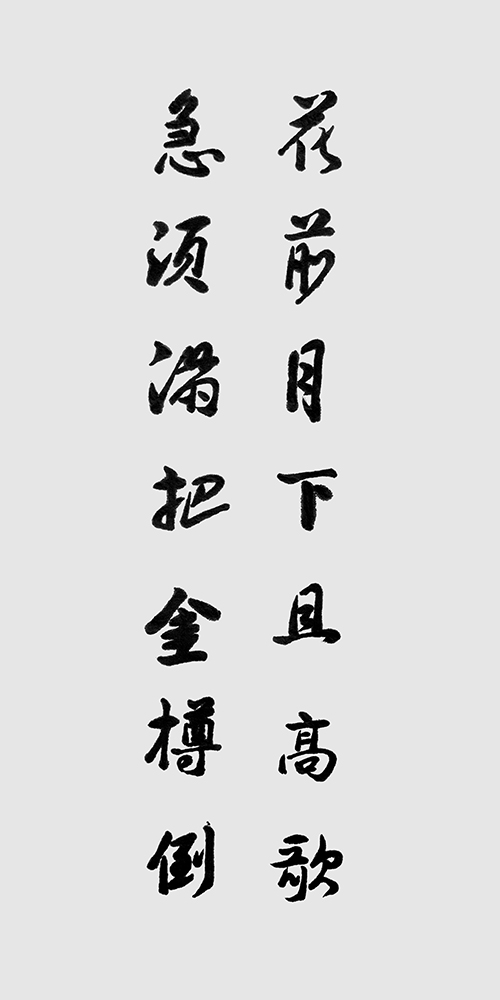 花前月下且高歌
急须满把金樽倒